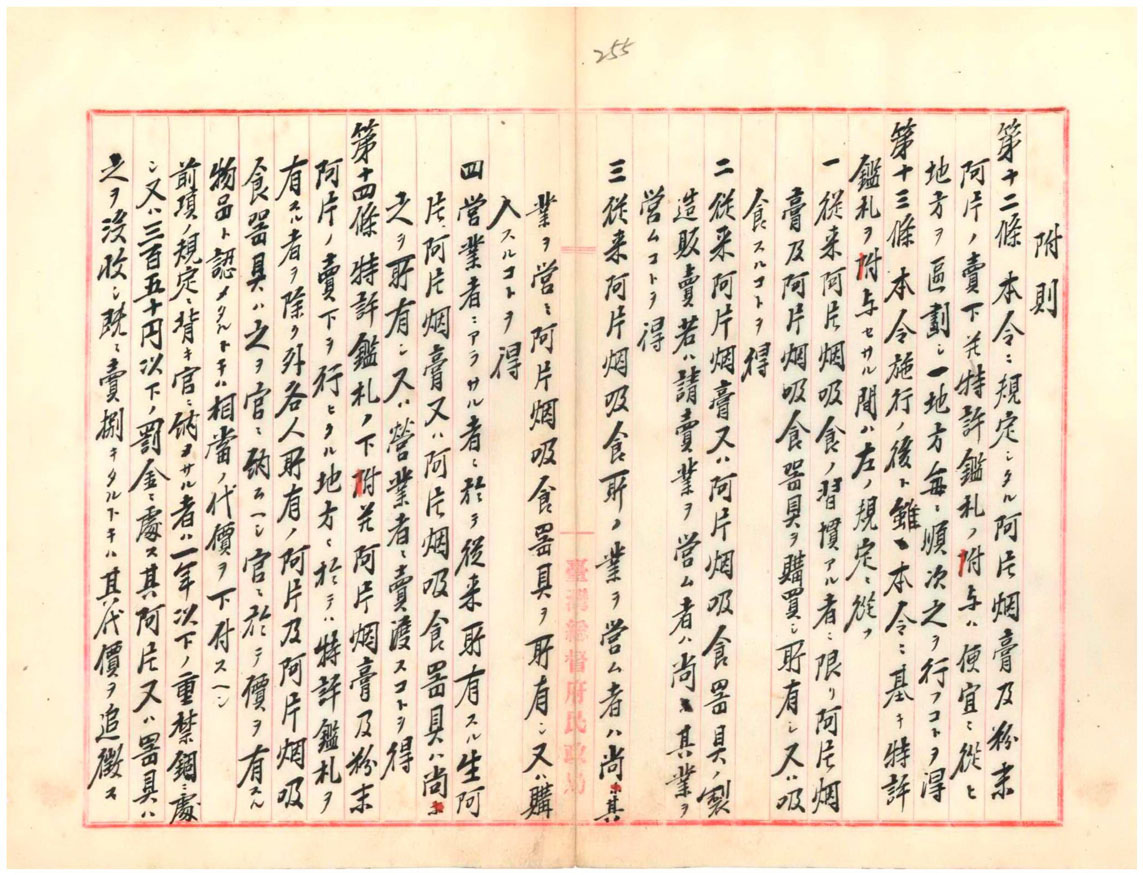 255
附則
第十二條 本令ニ規定シタル阿片烟膏及粉末
阿片ノ賣下並特許鑑札ノ附与ハ便宜ニ從ヒ
地方ヲ區劃シ一地方每ニ順次之ヲ行フコトヲ得
第十三條 本令施行ノ後ト雖モ本令ニ基キ特許
鑑札ヲ附与セサル間ハ左ノ規定ニ從フ
一 從来阿片烟吸食ノ習慣アル者ニ限リ阿片烟
膏及阿片烟吸食器具ヲ購買シ所有シ又ハ吸
食スルコトヲ得
二 從来阿片烟膏又ハ阿片烟吸食器具ノ製
造販賣若ハ請賣業ヲ営ム者ハ尚ホ其業ヲ
営ムコトヲ得
三 從来阿片烟吸食所ノ業ヲ営ム者ハ尚ホ其
業ヲ営ミ阿片烟吸食器具ヲ所有シ又ハ購
入スルコトヲ得
四 営業者ニアラサル者ニ於テ從来所有スル生阿
片、阿片烟膏又ハ阿片烟吸食器具ハ尚ホ
之ヲ所有シ又ハ營業者ニ賣渡スコトヲ得
第十四條 特許鑑札ノ下附並阿片烟膏及粉末
阿片ノ賣下ヲ行ヒタル地方ニ於テハ特許鑑札ヲ
有スル者ヲ除ク外各人所有ノ阿片及阿片烟吸
食器具ハ之ヲ官ニ納ムヘシ官ニ於テ價ヲ有スル
物品ト認メタルトキハ相當ノ代價ヲ下付スヘシ
前項ノ規定ニ背キ官ニ納メサル者ハ一年以下ノ重禁錮ニ處
シ又ハ三百五十円以下ノ罰金ニ處ス其阿片又ハ器具ハ
之ヲ没收シ既ニ賣捌キタルトキハ其代價ヲ追徴ス
臺灣總督府民政局